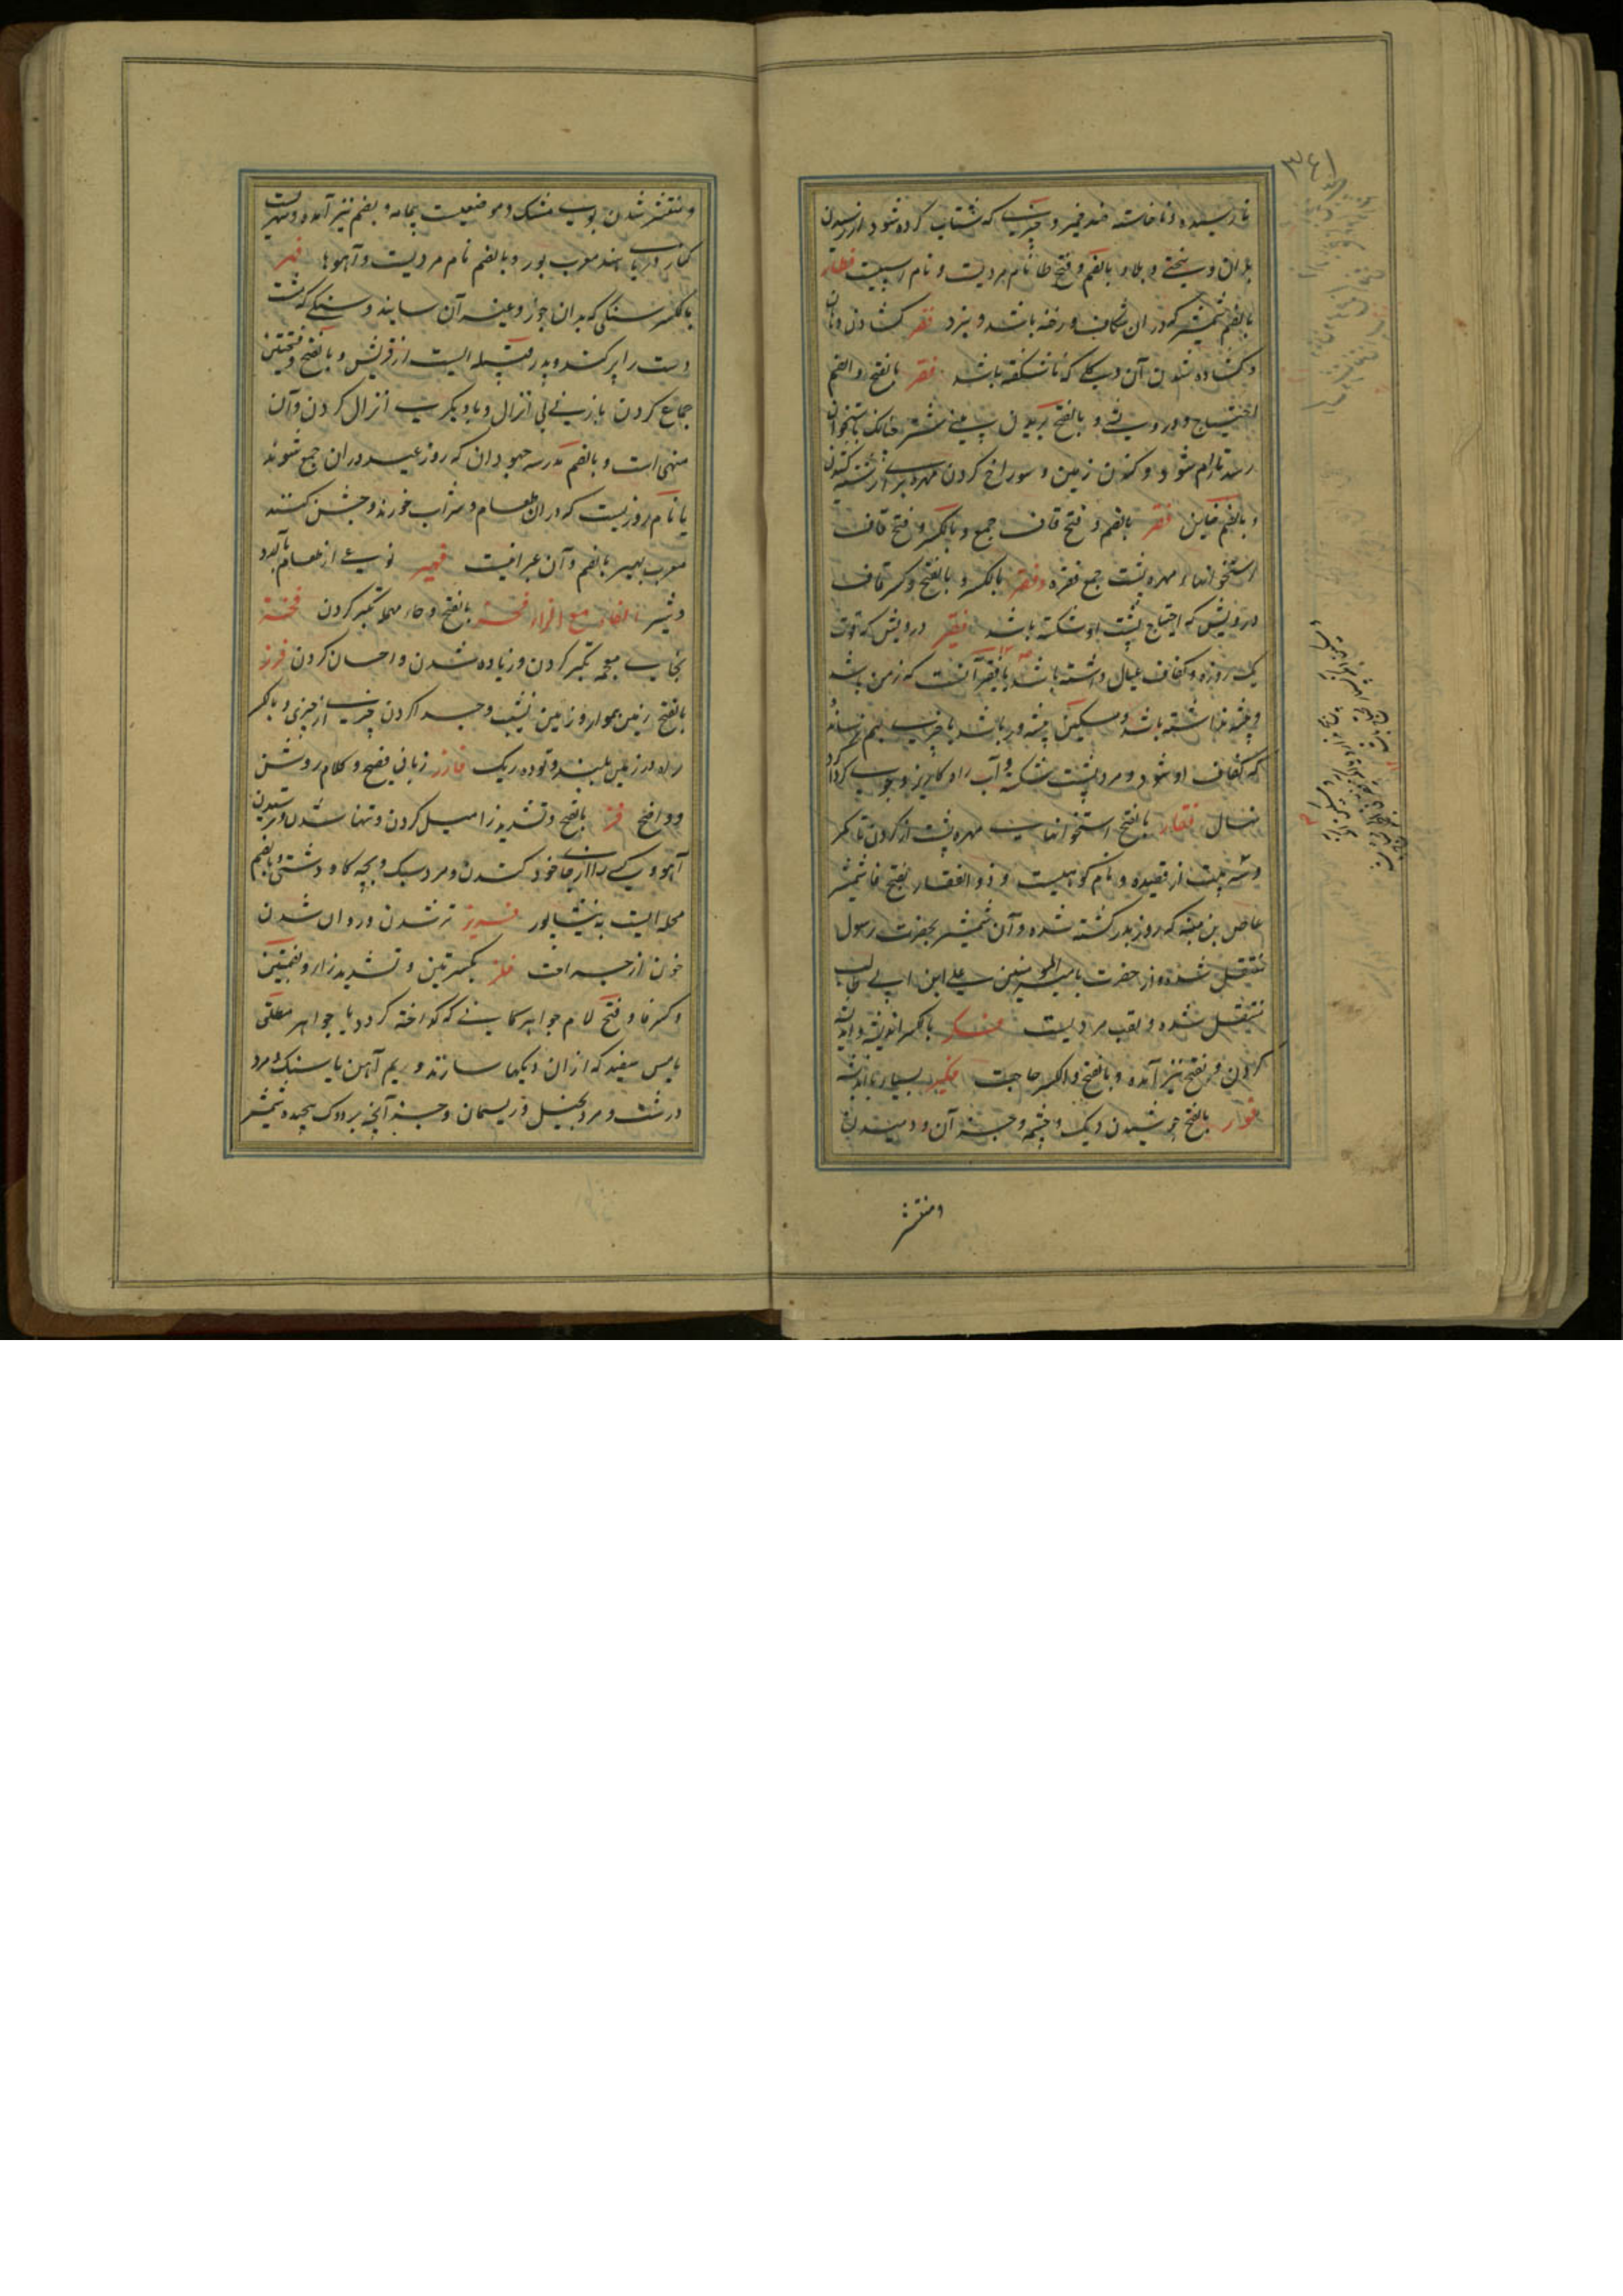 ۳۶۱
نارسیده و ناخاسته ضد خمیر و چیزی که شتاب کرده شود از رسیدن
بدان و سختی و بلا و بالضم و فتح طا نام مردیست و نام اسپیست فطار
بالضم شمشیر که در ان شکاف و رخنه باشد و نبرد فغر کشادن دهان
و کشاده شدن آن و گلی که ناشکفته باشد فقر بالفتح و الضم
احتیاج و درویشی و بالفتح بریدن بینی شتر چنانکه باستخوان
رسد تا رام شود و کندن زمین و سوراخ کردن مهره برای رشته کشیدن
و بالضم جانب فقر بالضم و فتح قاف جمع و بالکسر و فتح قاف
استخوانهاء مهره پشت جمع فقره و فقر بالکسر و بالفتح و کسر قاف
درویش که احتیاج پشت او شکسته باشد فقیر درویش که قوت
یک روزه و کفاف عیال داشته باشد یا فقیر آنست که زمن باشد
و پیشه نداشته باشد و مسکین پیشه ور باشد یا چیزی بهم نرساند
که کفاف او شود و مرد پشت شکسته و آب راه کاریز و جوب گرداگرد
نهال فقار بالفتح استخوانهای مهره پشت از گردن تا کمر
و سه بیت از قصیده و نام کوهیست و ذو الفقار بفتح فا شمشیر
عاص بن منبه که روز بدر کشته شده و آن شمشیر بحضرت رسول
منتقل شده و از حضرت بامیر المومنین علی ابن ابی طالب
منتقل شده و لقب مردیست فکر بالکسر اندیشه و اندیشه
کردن و بفتح نیز آمده و بالفتح و الکسر حاجت فکیر بسیار بااندیشه
فوار بالفتح جوشیدن دیک و چشمه و جز آن و دمیدن
و منتشر
و منتشر شدن بوی مشک و موضعیست بیمامه و بضم نیز آمده و شهریست
کنار دریای هند معرب پور و بالضم نام مردیست و آهوها فهر
بالکسر سنگی که بدان جوز و غیر آن سایند و سنگی که مشت
دست را پر کند و پدر قبیله ایست از قریش و بالفتح و فتحتین
جماع کردن با زنی بی انزال و با دیگری انزال کردن و آن
منهی است و بالضم مدرسه جهودان که روز عید در ان جمع شوند
یا نام روزیست که در ان طعام و شراب خورند و جشن کنند
معرب بهر بالضم و آن عبرانیست فهیر نوعی از طعام با آرد
و شیر الفاء مع الزاء فحز بالفتح و حاء مهمله تکبر کردن فخز
بخای معجمه تکبر کردن و زیاده شدن و احسان کردن فرز
بالفتح زمین هموار و زمین نشیب و جدا کردن چیزی از چیزی و بالکسر
راه در زمین بلند و توده ریک فارز زبانی فصیح و کلام روشن
و واضح فز بالفتح و تشدید زا میل کردن و تنها شدن و ترسیدن
آهو و کسی را از جا خود کندن و مرد سبک و بچه گاو دشتی و بالضم
محله ایست به نیشابور فزیز تر شدن و روان شدن
خون از جراحت فلز بکسرتین و تشدید زا و بضمتین
و کسر فا و فتح لام جواهر کانی که گداخته گردد یا جواهر معلق
یا مس سفید که از ان دیکها سازند و ریم آهن یا سنک و مرد
درشت و مرد بخیل و ریسمان و جز آنچه بر دوک پیچیده شمشیر